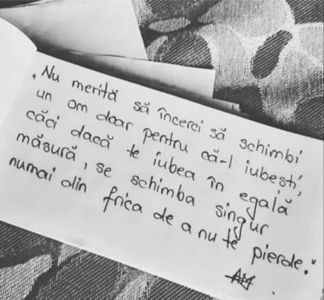 „Nu merită să încerci să schimbi
un om doar pentru că-l iubești,
căci dacă te iubea în egală
măsură, se schimba singur
numai din frica de a nu te pierde."
AM